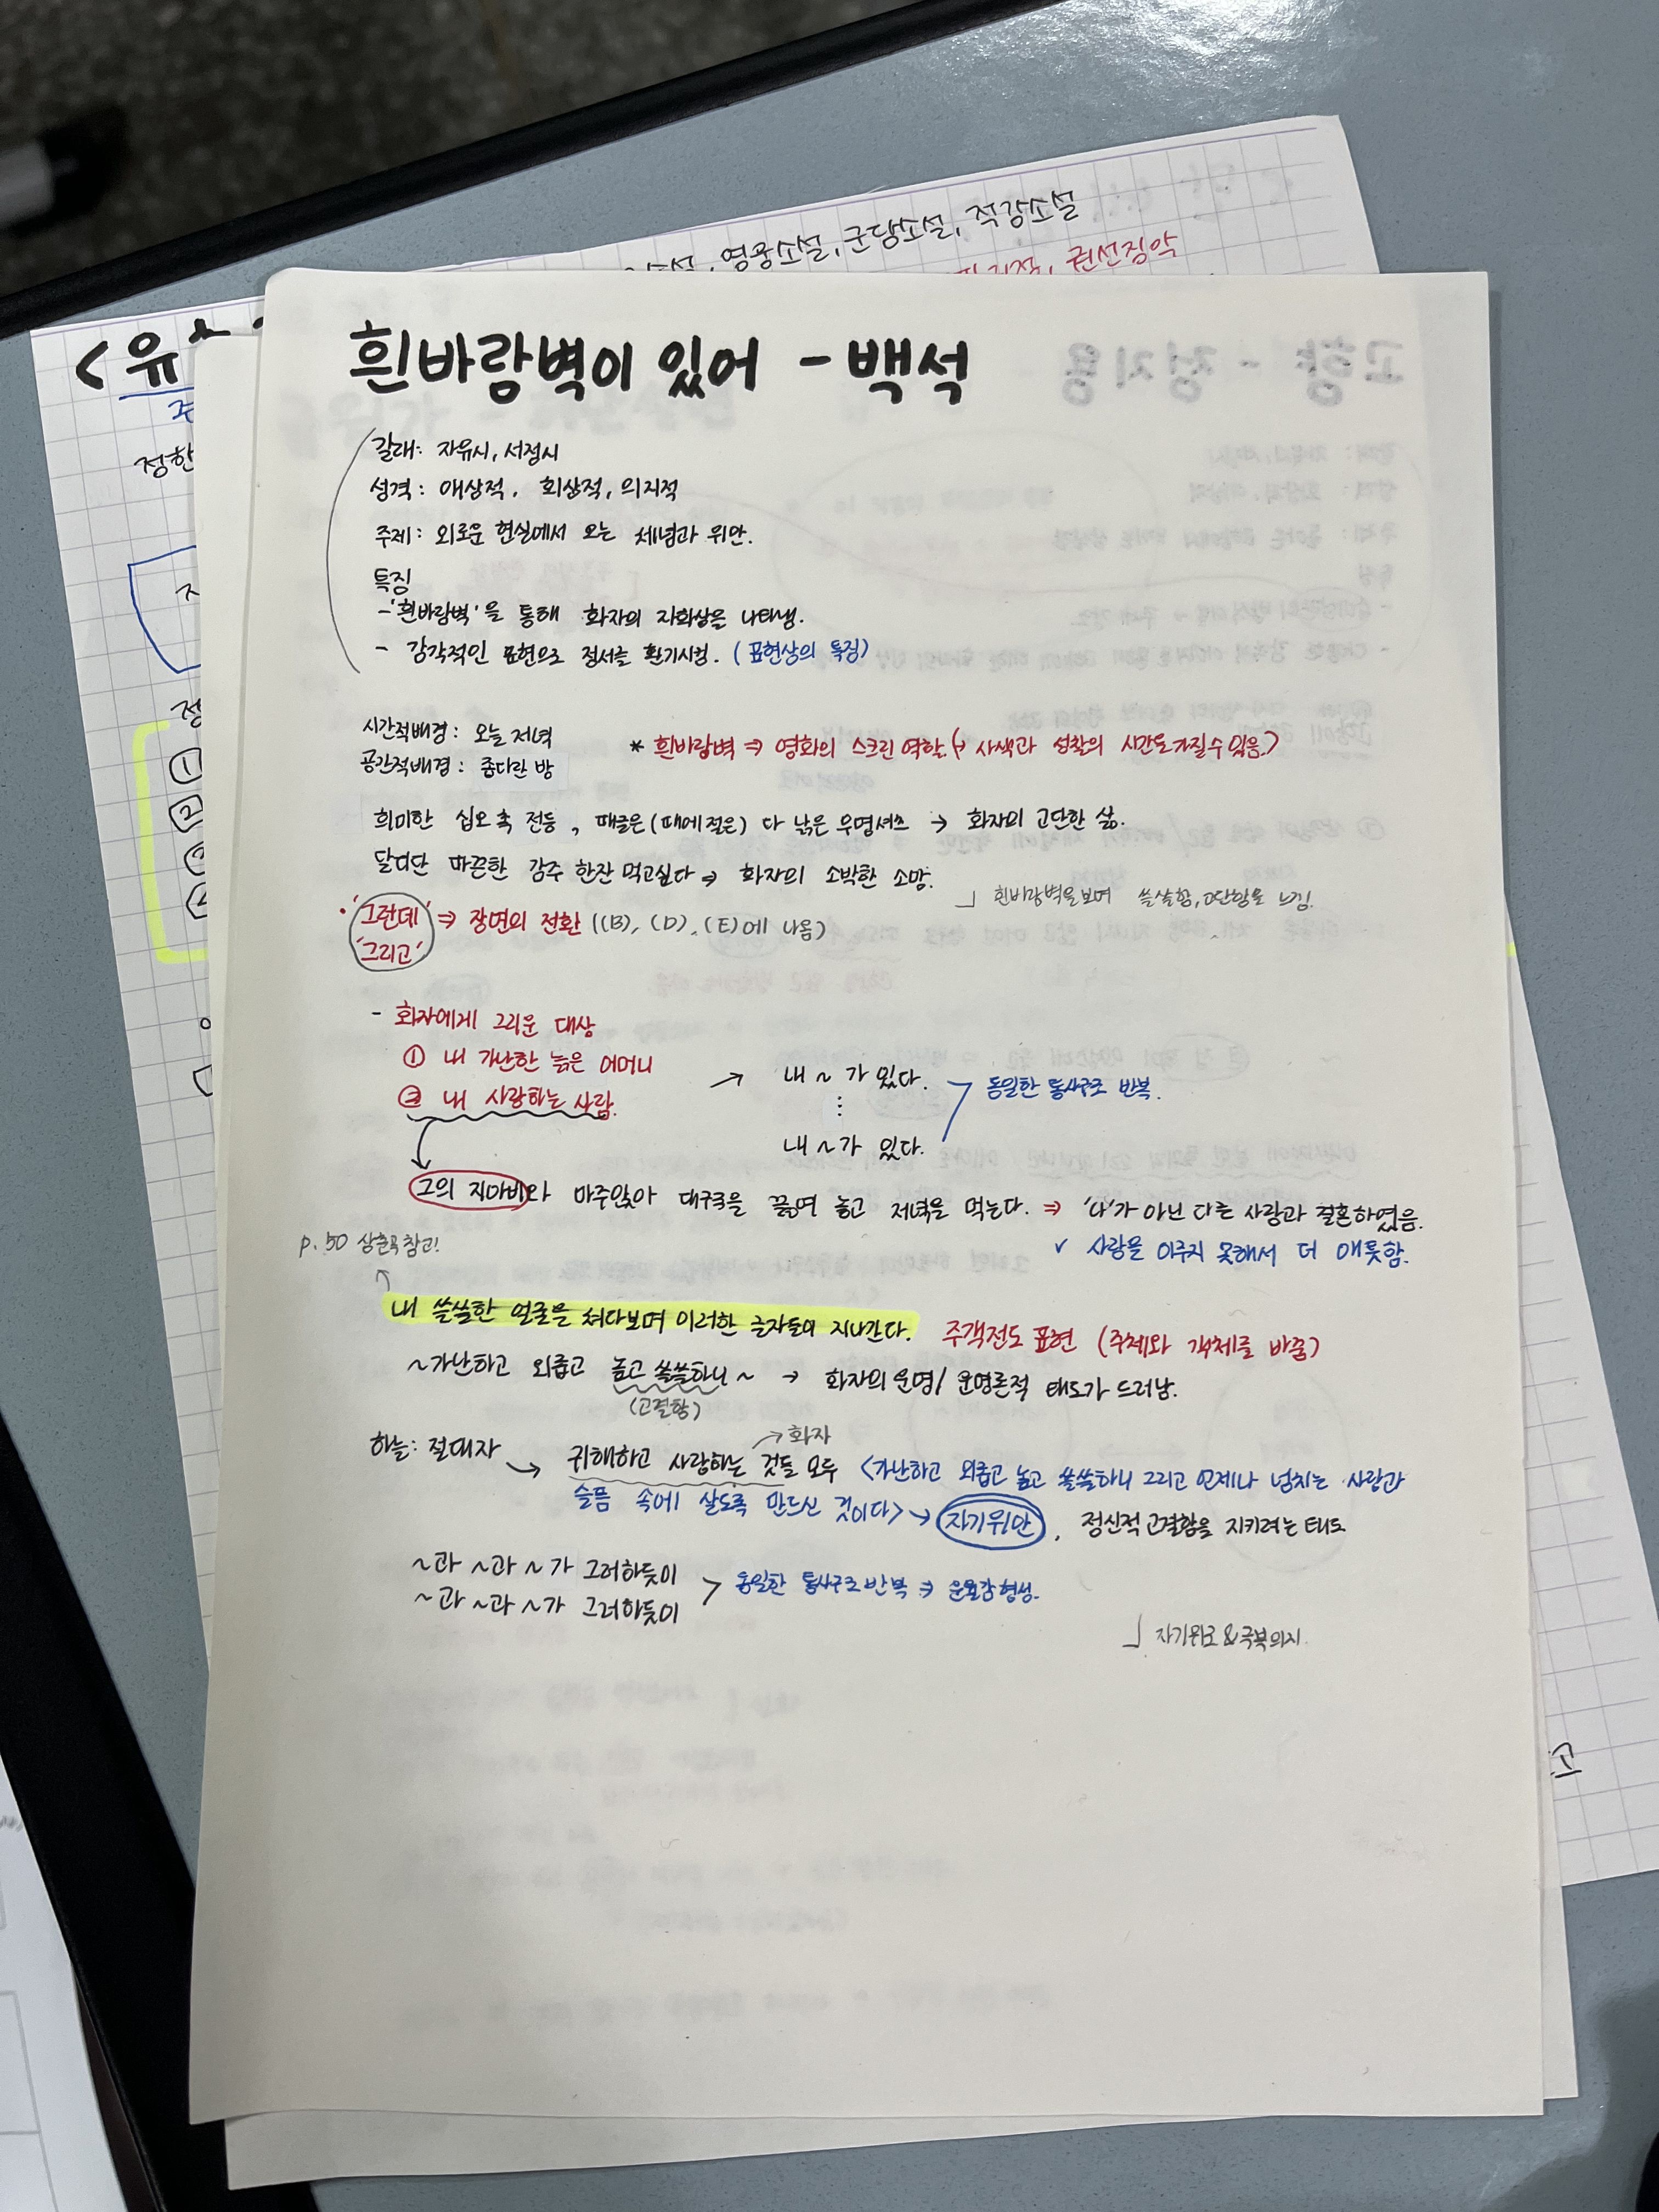 영웅소설, 군담소설, 적강소설
권선징악
<유
정한
흰바람벽이 있어 - 백석
갈래: 자유시, 서정시
성격: 애상적, 회상적, 의지적
주제: 외로운 현실에서 오는 체념과 위안.
특징
-'흰바람벽'을 통해 화자의 자화상을 나타냄.
- 감각적인 표현으로 정서를 환기시킴. (표현상의 특징)
시간적배경: 오늘 저녁
공간적배경: 좁다란 방
* 흰바람벽 ⇒ 영화의 스크린 역할.(↳ 사색과 성찰의 시간도 가질 수 있음.)
희미한 십오 촉 전등, 때글은(때에 절은) 다 낡은 무명셔츠 → 화자의 고단한 삶.
달디단 따끈한 감주 한잔 먹고싶다 ⇒ 화자의 소박한 소망.
흰바람벽을 보며 쓸쓸함, 고단함을 느낌.
'그런데' ⇒ 장면의 전환 ((B), (D), (E)에 나옴)
'그리고'
- 화자에게 그리운 대상
① 내 가난한 늙은 어머니
② 내 사랑하는 사람.
→ 내 ~ 가 있다.
⋮
내 ~ 가 있다.
동일한 통사구조 반복.
그의 지아비와 마주앉아 대구국을 끓여 놓고 저녁을 먹는다. ⇒ '나'가 아닌 다른 사람과 결혼하였음.
✓ 사랑을 이루지 못해서 더 애틋함.
p.50 상춘곡 참고!
내 쓸쓸한 얼굴을 쳐다보며 이러한 글자들이 지나간다. 주객전도 표현 (주체와 객체를 바꿈)
~가난하고 외롭고 높고 쓸쓸하니~ → 화자의 운명/ 운명론적 태도가 드러남.
(고결함)
→ 화자
하늘: 절대자 → 귀해하고 사랑하는 것들 모두 <가난하고 외롭고 높고 쓸쓸하니 그리고 언제나 넘치는 사랑과
슬픔 속에 살도록 만드신 것이다> → 자기위안, 정신적 고결함을 지키려는 태도
~과 ~과 ~가 그러하듯이
~과 ~과 ~가 그러하듯이
> 동일한 통사구조 반복 ⇒ 운율감 형성.
자기위로 & 극복의지.
고